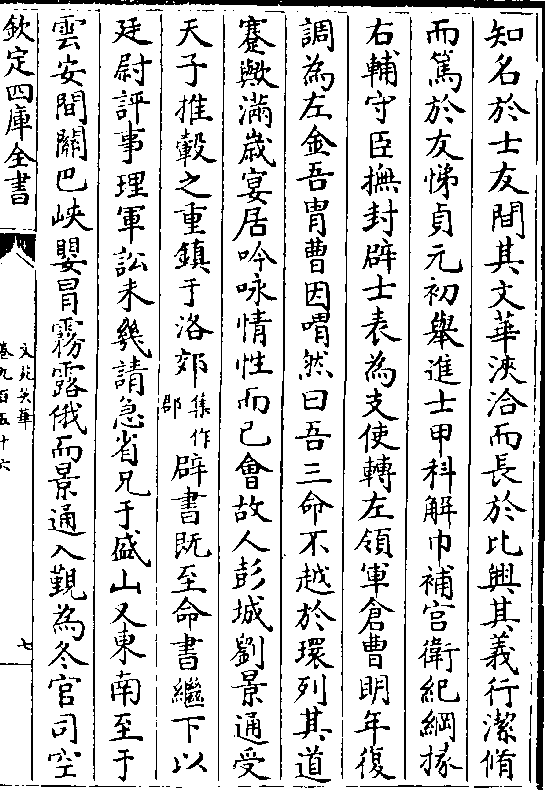 知名於士友間其文華浹洽而長於比興其義行潔脩
而篤於友悌貞元初舉進士甲科解巾補宫衛紀綱掾
右輔守臣撫封辟士表為支使轉左領軍倉曹明年復
調為左金吾胄曹因喟然曰吾三命不越於環列其道
蹇歟滿歲宴居吟咏情性而已會故人彭城劉景通受
天子推轂之重鎮于洛郊集作郡辟書既至命書繼下以
廷尉評事理軍訟未幾請急省兄于盛山又東南至于
雲安間關巴峽嬰冒霧露俄而景通入覲為冬官司空
欽定四庫全書
文苑英華
卷九百五十六
七